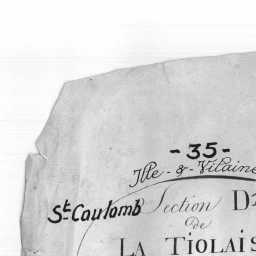 - 35 -
Ille - & - Vilaine
St. Coulomb Section D
de
LA TIOLAIS